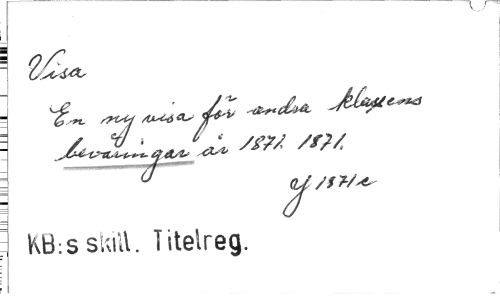 Visa
En ny visa för andra klassens
beväringar år 1871. 1871.
Y 1871 e
KB:s skill. Titelreg.